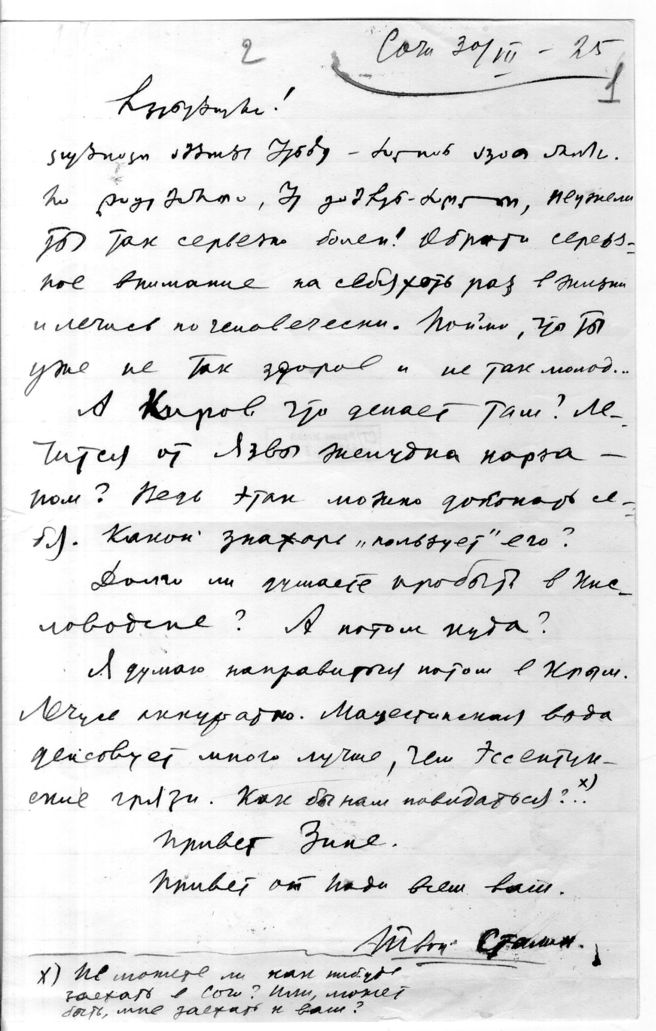 2
Сочи 30/VII – 25
1
неужели
ты так серьезно болен! Обрати серьез=
ное внимание на себя хоть раз в жизни
и лечись по человечески. Пойми, что ты
уже не так здоров и не так молод...
А Киров что делает там? Ле-
чится от язвы желудка нарза –
ном? Ведь этак можно доконать се-
бя. Какой знахарь „пользует" его?
Долго ли думаете пробыть в Кис-
ловодске? А потом куда?
Я думаю направиться потом в Крым.
Лечусь аккуратно. Мацестинская вода
действует много лучше, чем Эссентук-
ские грязи. Как бы нам повидаться?.. x)
Привет Зине.
Привет от Нади всем вам.
Твой Сталин.
x) Не можете ли как нибудь
заехать в Сочи? Или, может
быть, мне заехать к вам?